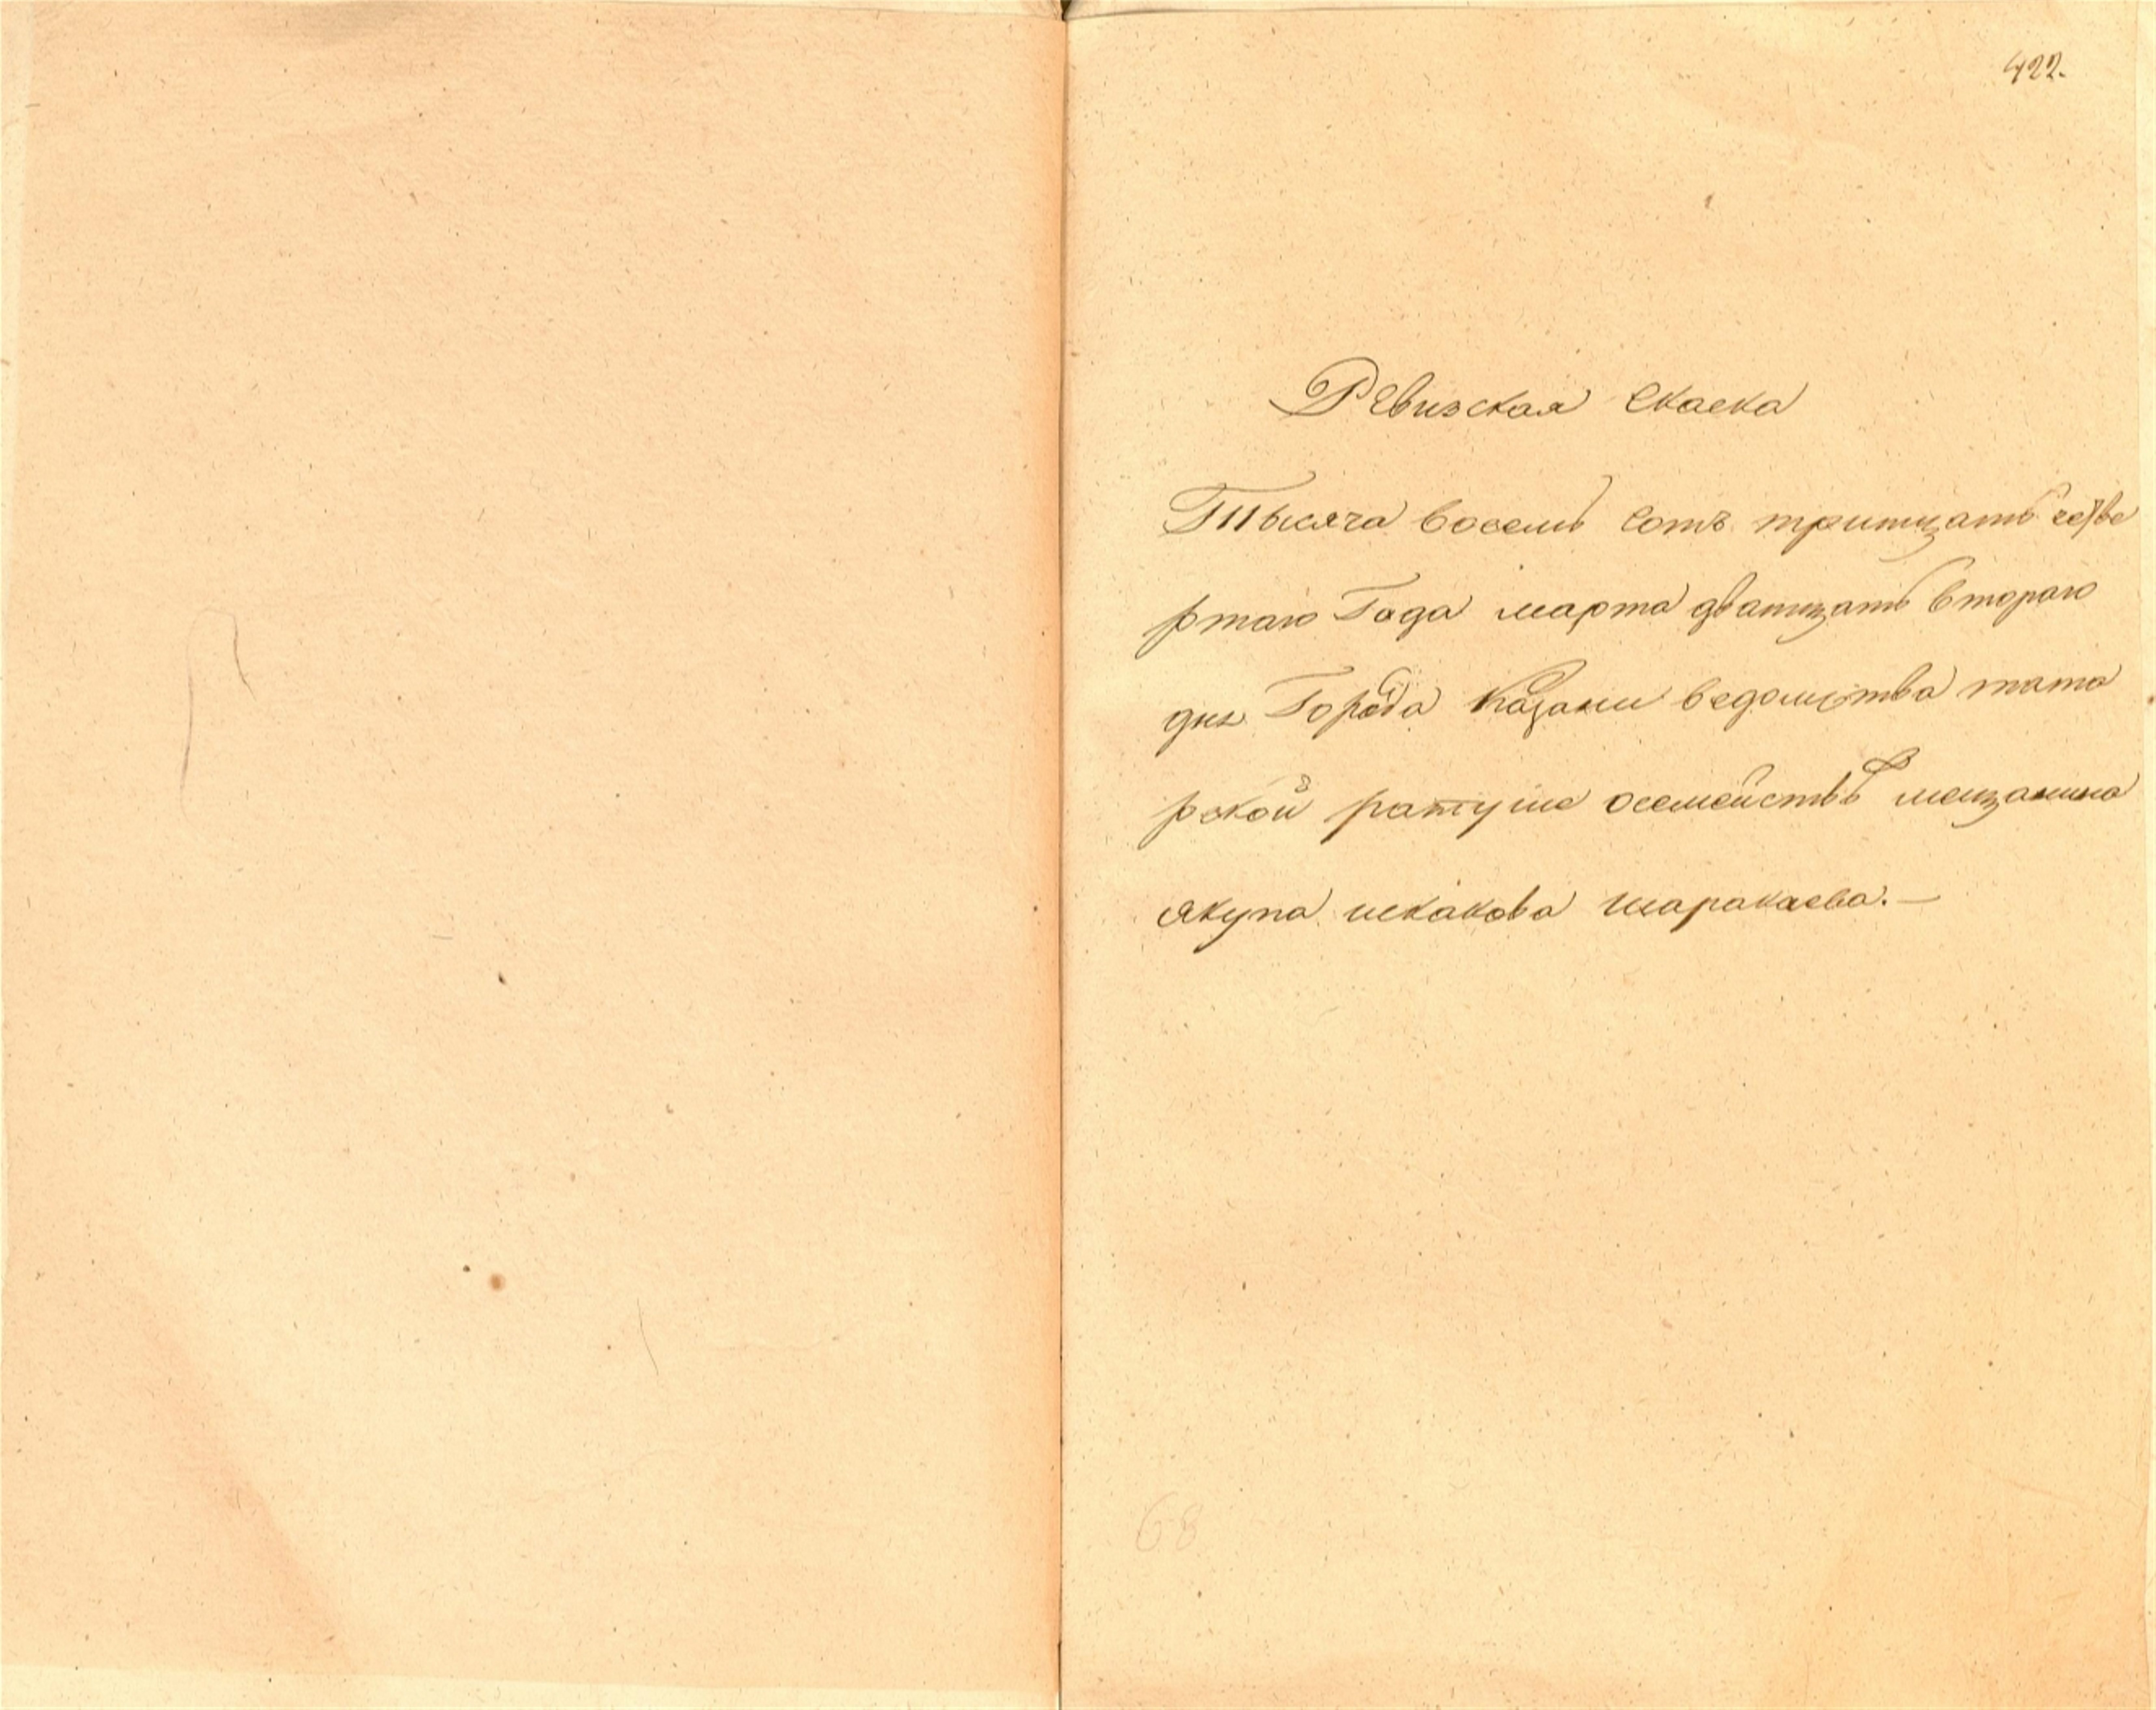 422.
Ревизская скаска
Тысяча восемь сотъ тритцать четве
ртаго Года марта дватцать втораго
дня Города Казани ведомства тата
рской ратуше осемействѣ мещанина
якупа искакова шаракаева. —
68